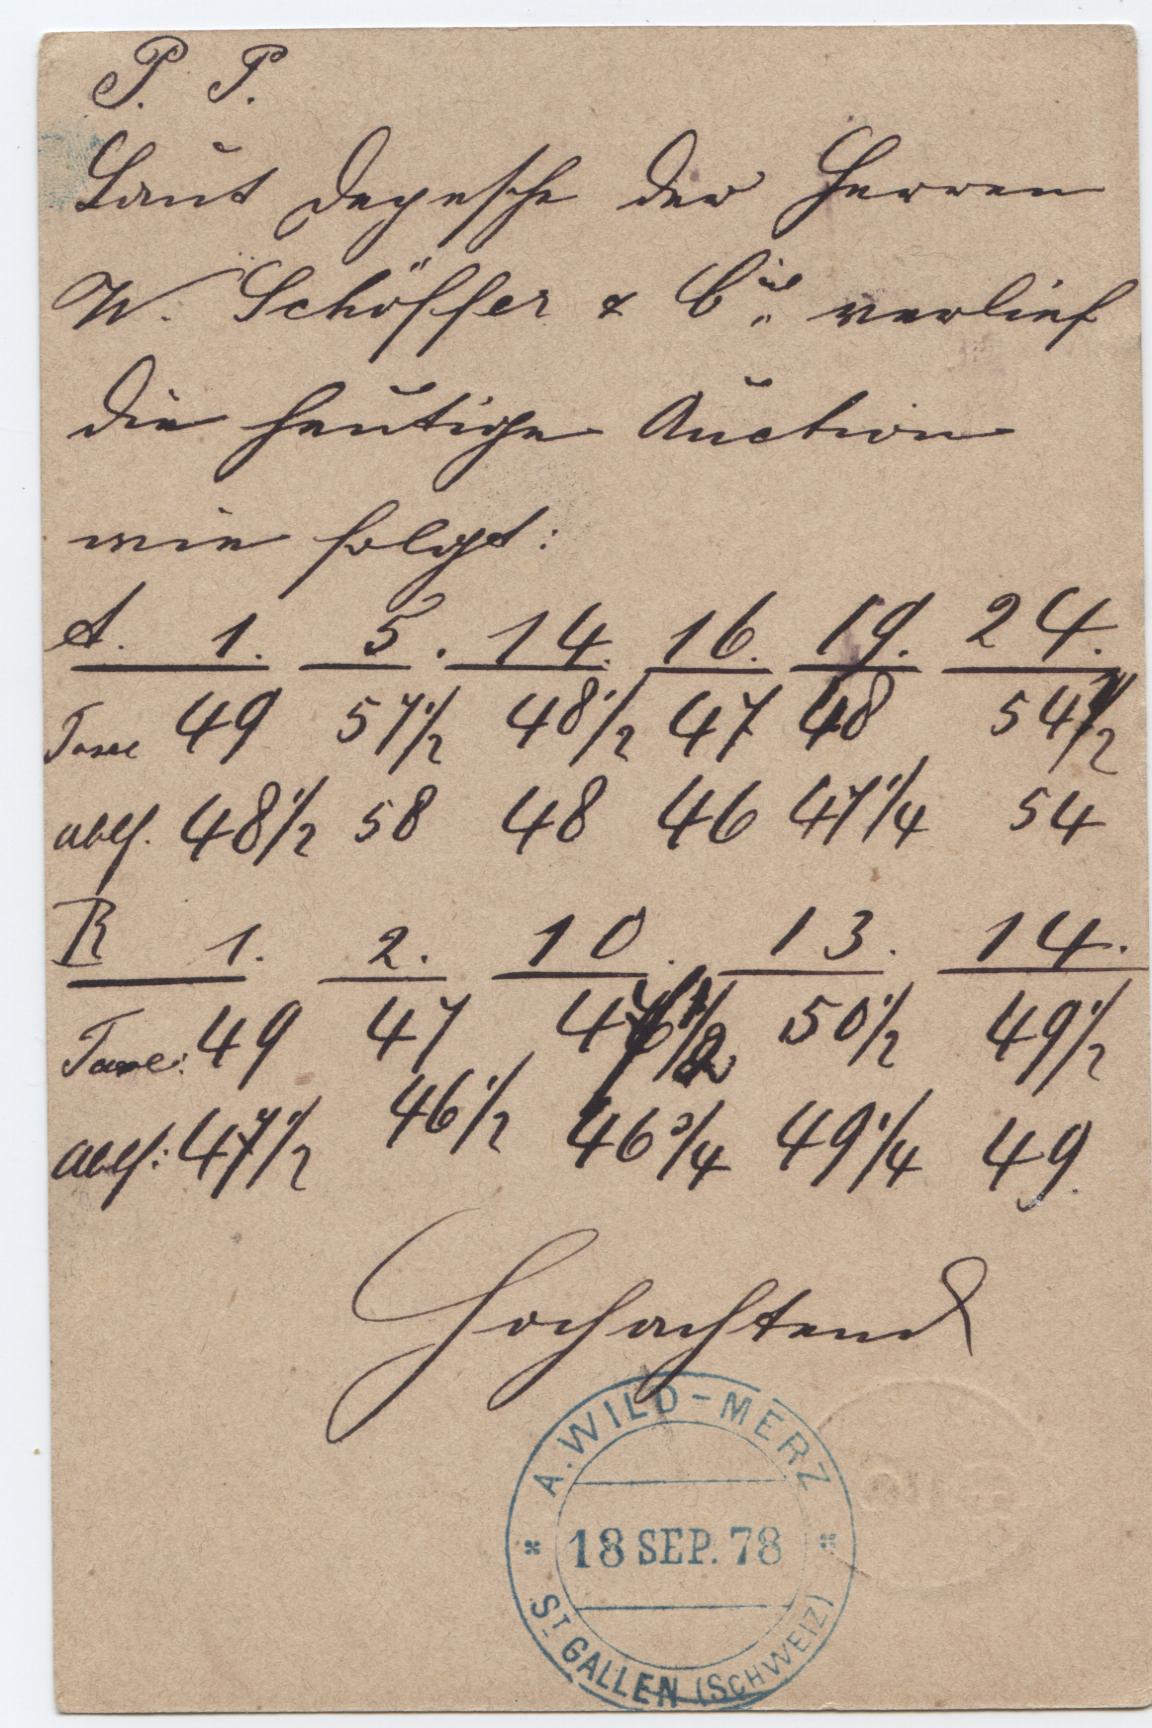 P. P.
Laut Depesche der Herren
W. Schöffer & Cie. verlief
die heutige Auction
wie folgt:
A. 1. 5. 14. 16. 19. 24.
Taxe 49 57 1/2 48 1/2 47 48 54 1/2
abls. 48 1/2 58 48 46 47 1/4 54
R 1. 2. 10. 13. 14.
Taxe: 49 47 50 1/2 49 1/2
abls: 47 1/2 46 1/2 46 3/4 49 1/4 49.
Hochachtend
A. WILD-MERZ
18 SEP. 78
ST GALLEN (SCHWEIZ)